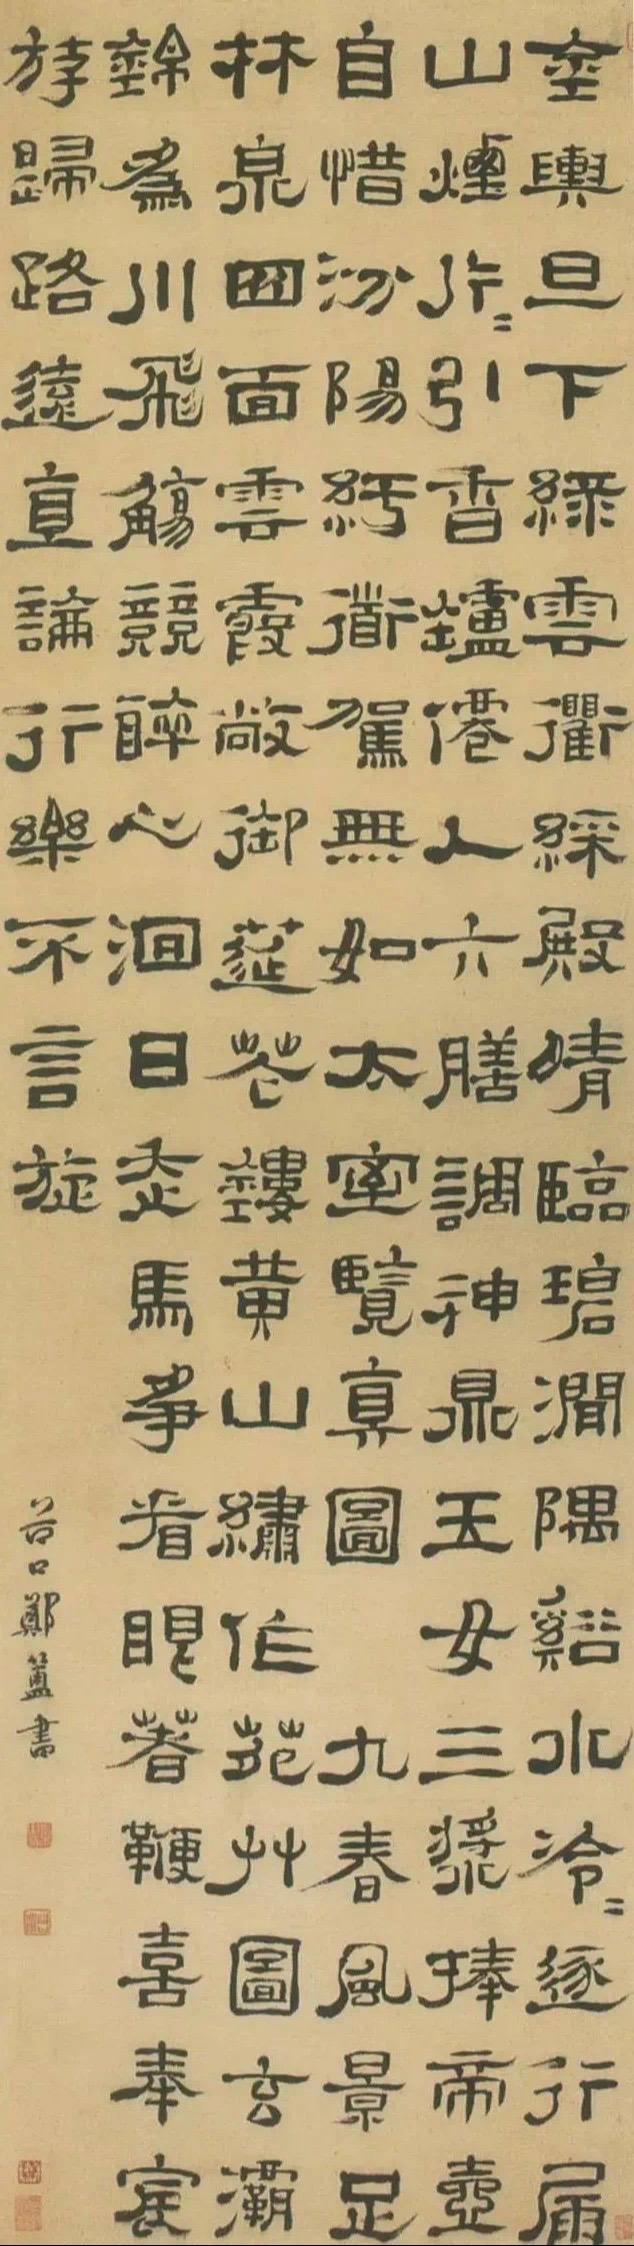 金輿旦下綠雲衢綵殿晴臨碧澗隅谿水泠〻逐行屚
山煙片〻引香鑪僊人六膳調神鼎玉女三漿捧帝壺
自惜汾陽紆衟駕無如太室覽真圖 九春風景足
林泉四面雲霞敞御莚花鏤黃山繡作苑艸圖玄灞
錦為川飛觴競醉心洄日走馬爭看眼著鞭喜奉宸
斿歸路遠直論行樂不言旋
谷口鄭簠書